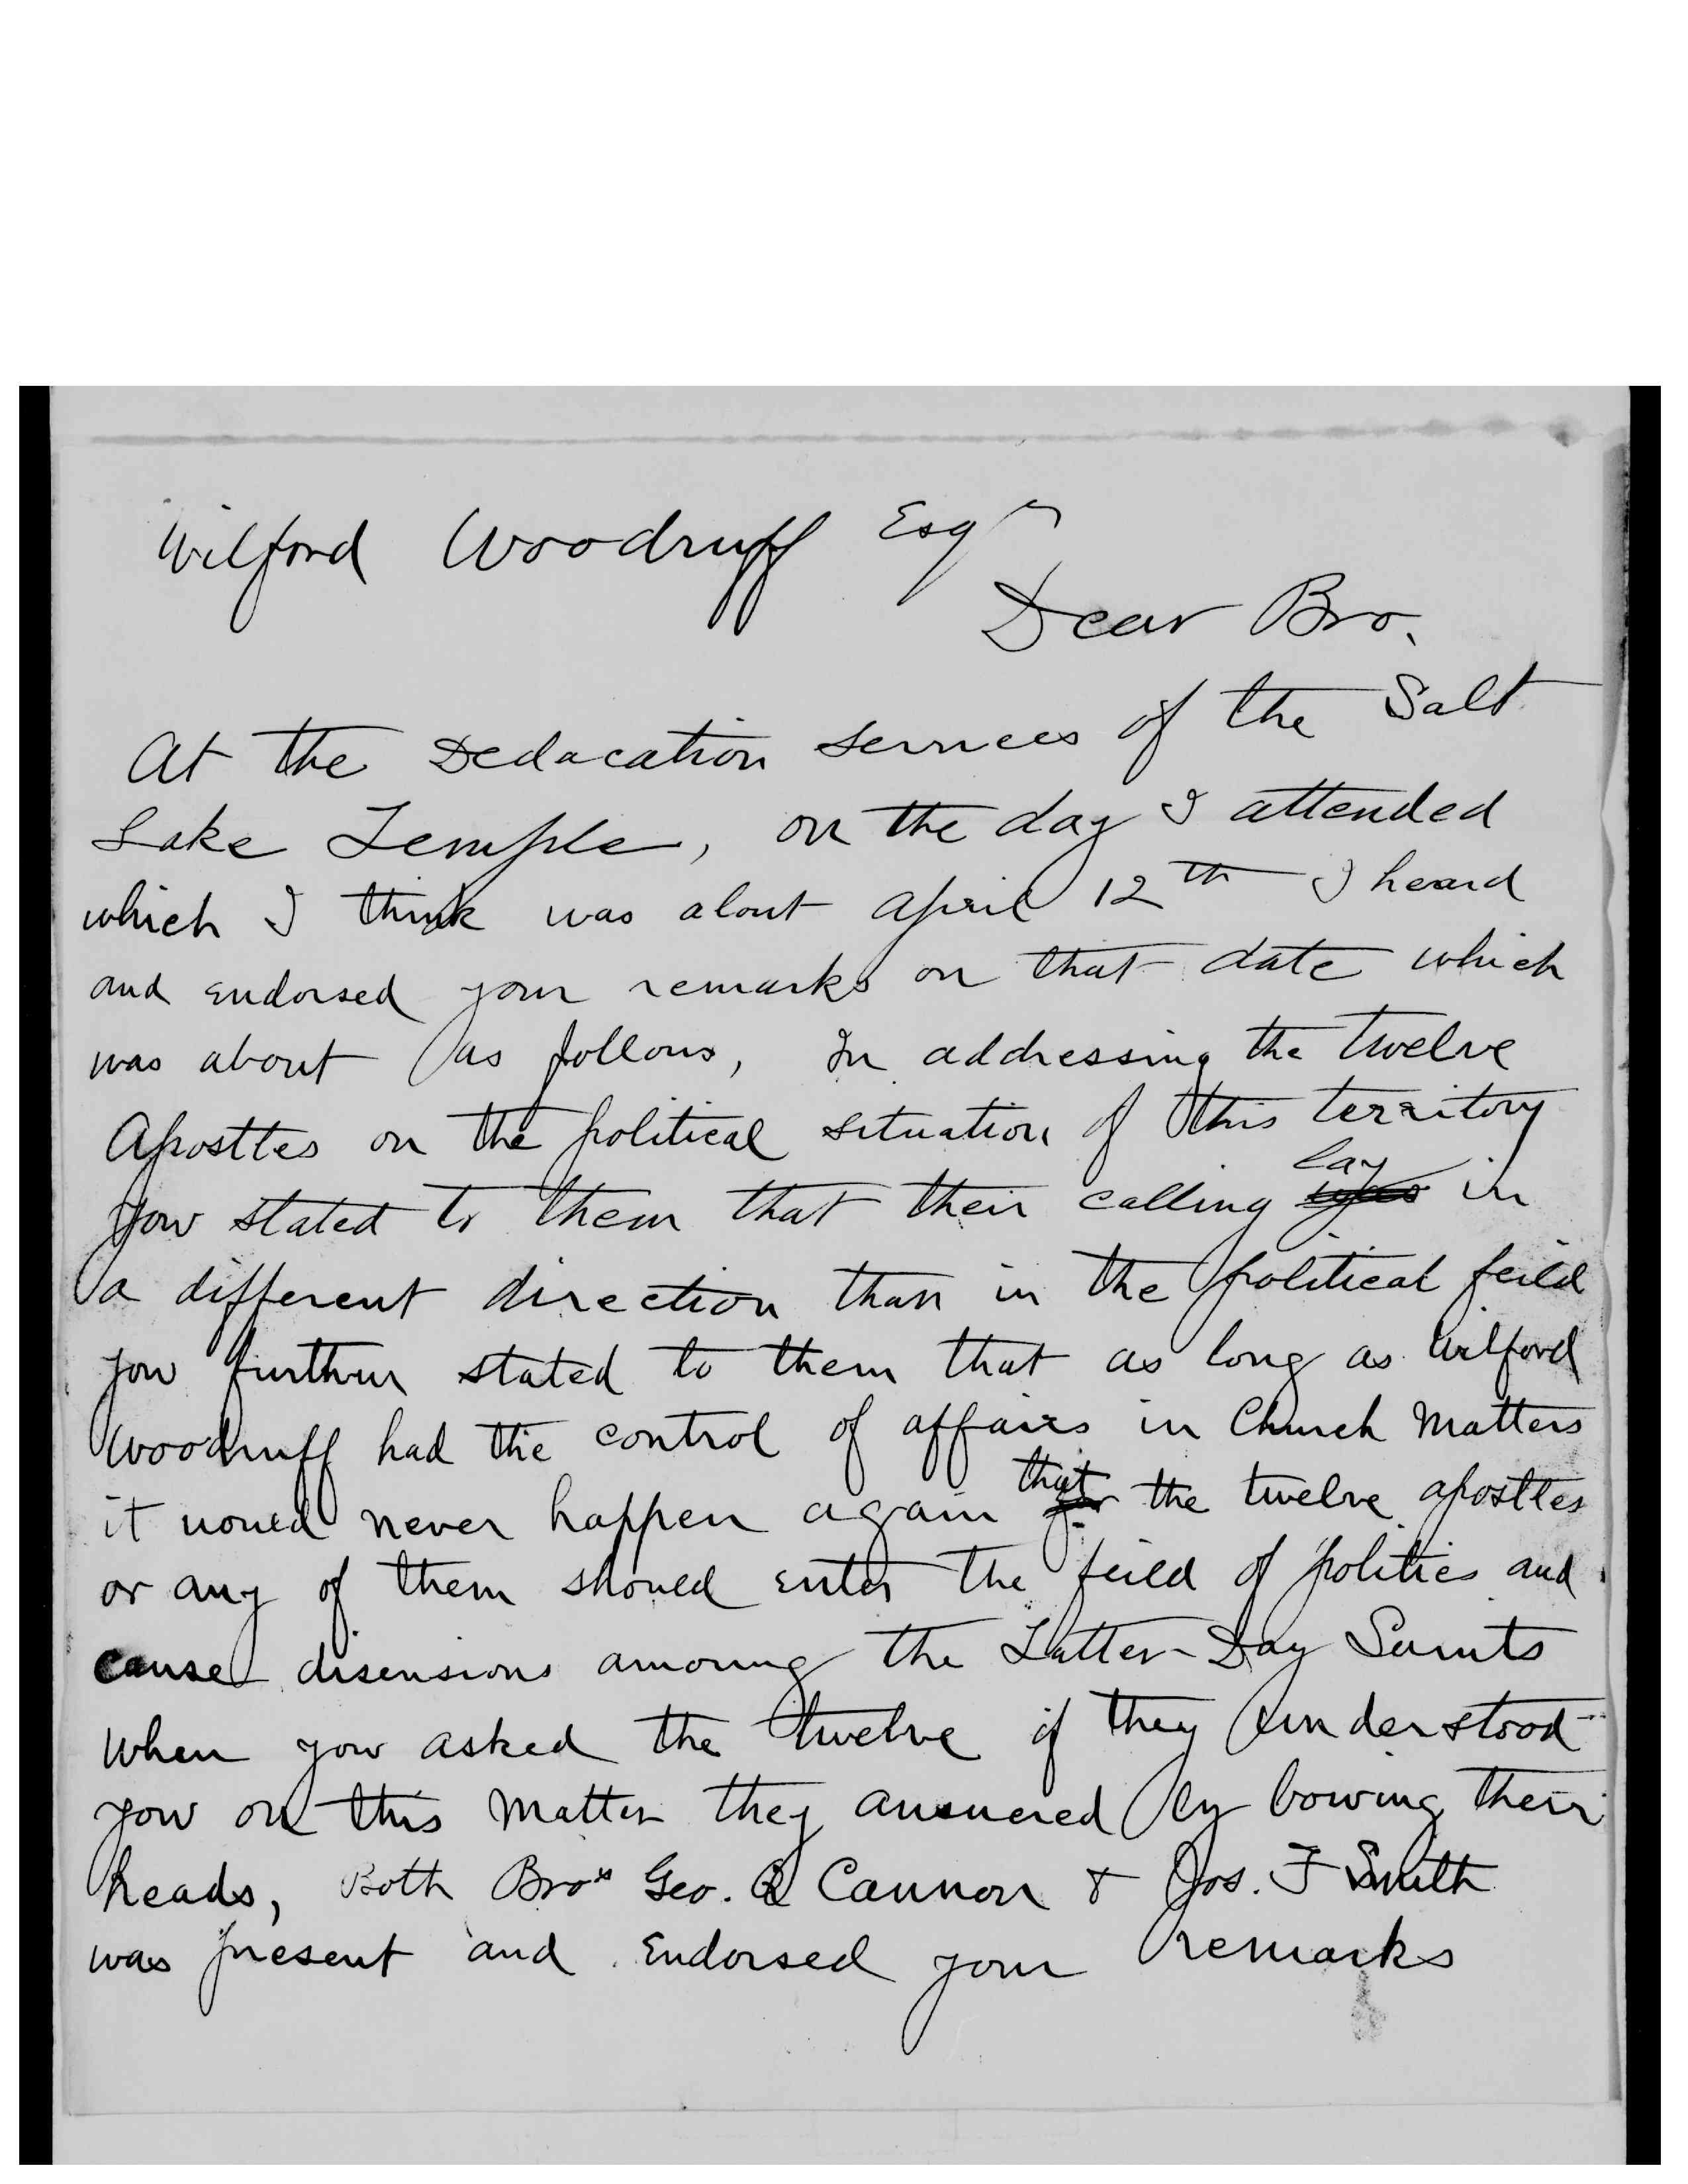 Wilford Woodruff Esqr
Dear Bro.
At the Dedacation services of the Salt
Lake Temple, on the day I attended
which I think was about April 12th I heard
and endorsed your remarks on that date which
was about as follows, In addressing the twelve
Apostles on the political situation of this territory
you stated to them that their calling lay in
a different direction than in the political feild
you further stated to them that as long as Wilford
Woodruff had the control of affairs in Church Matters
it would never happen again that the twelve apostles
or any of them should enter the feild of politics and
cause disensions amoung the Latter-Day Saints
When you asked the twelve if they understood
you on this Matter they answered by bowing their
heads, Both Bros Geo. Q Cannon & Jos. F Smith
was present and Endorsed your remarks